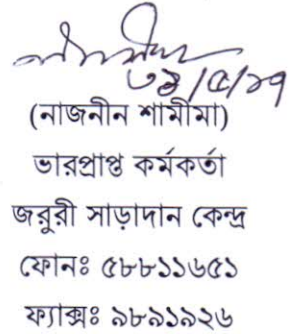 ৩১/৫/১৭
(নাজনীন শামীমা)
ভারপ্রাপ্ত কর্মকর্তা
জরুরী সাড়াদান কেন্দ্র
ফোনঃ ৫৮৮১১৬৫১
ফ্যাক্সঃ ৯৮৯১৯২৬